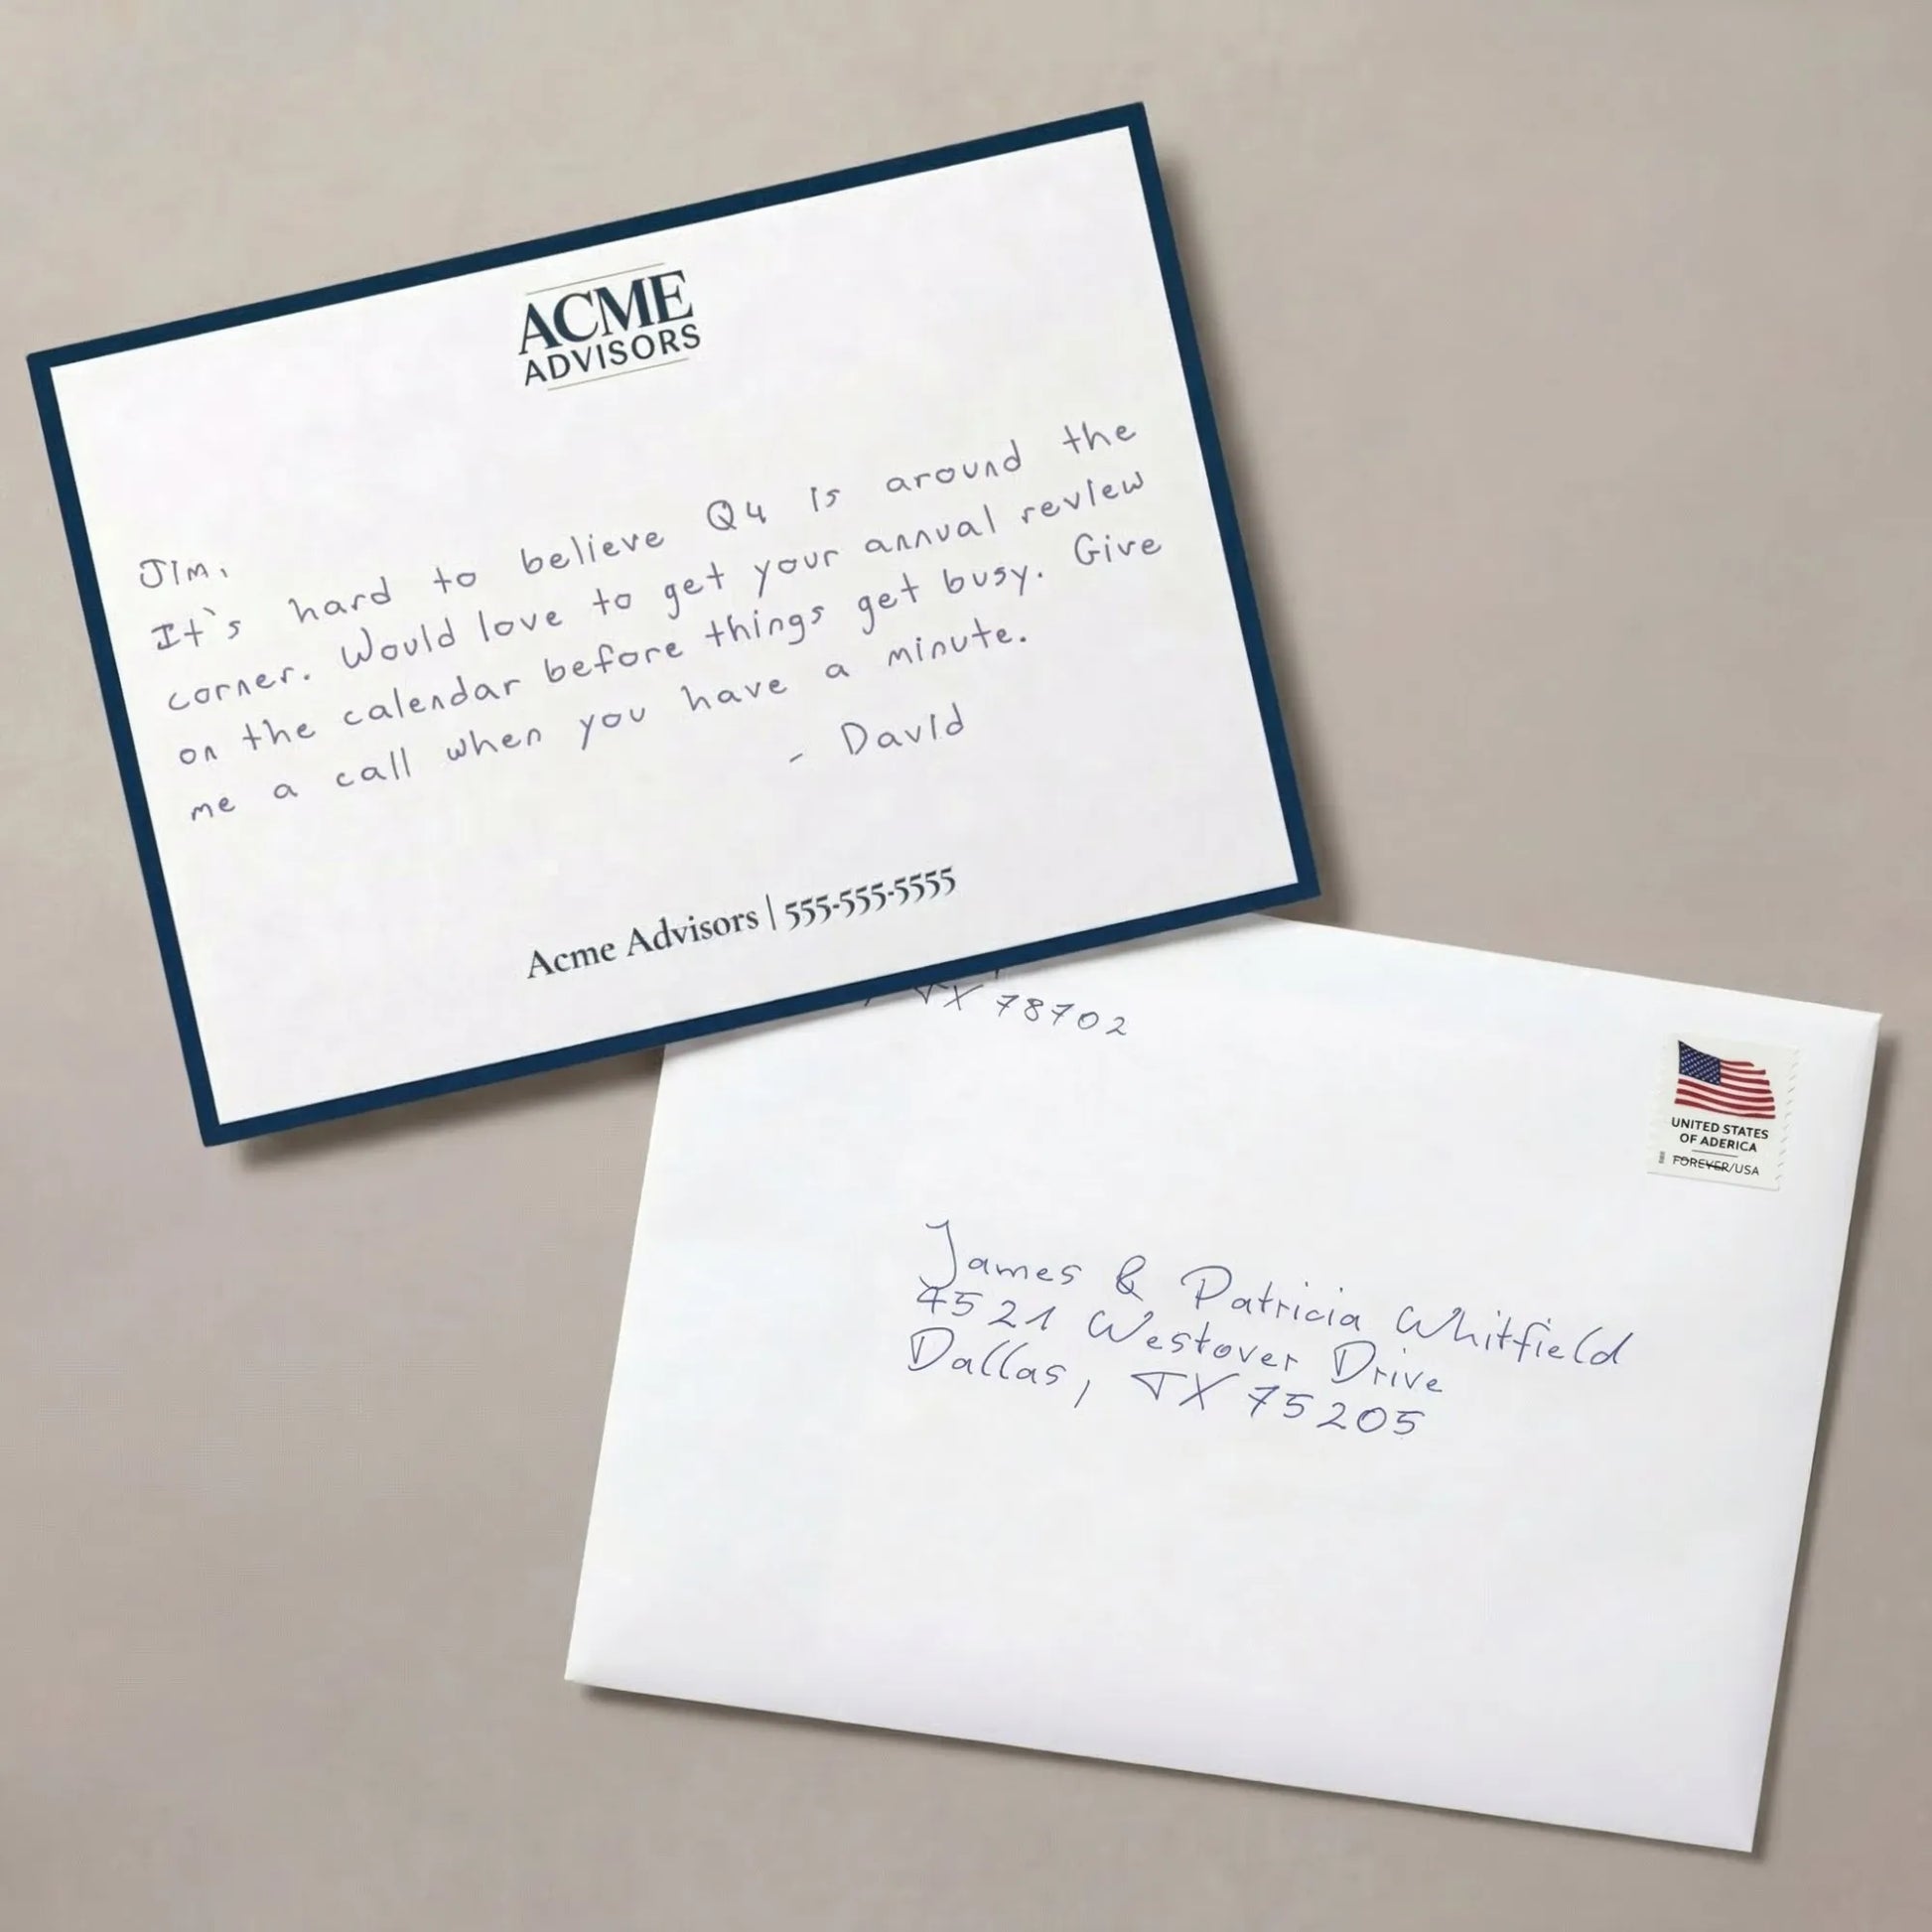 ACME
ADVISORS
Jim,
It's hard to believe Q4 is around the
corner. Would love to get your annual review
on the calendar before things get busy. Give
me a call when you have a minute.
- David
Acme Advisors | 555-555-5555
TX 78702
UNITED STATES
OF ADERICA
FOREVER/USA
James & Patricia Whitfield
4521 Westover Drive
Dallas, TX 75205